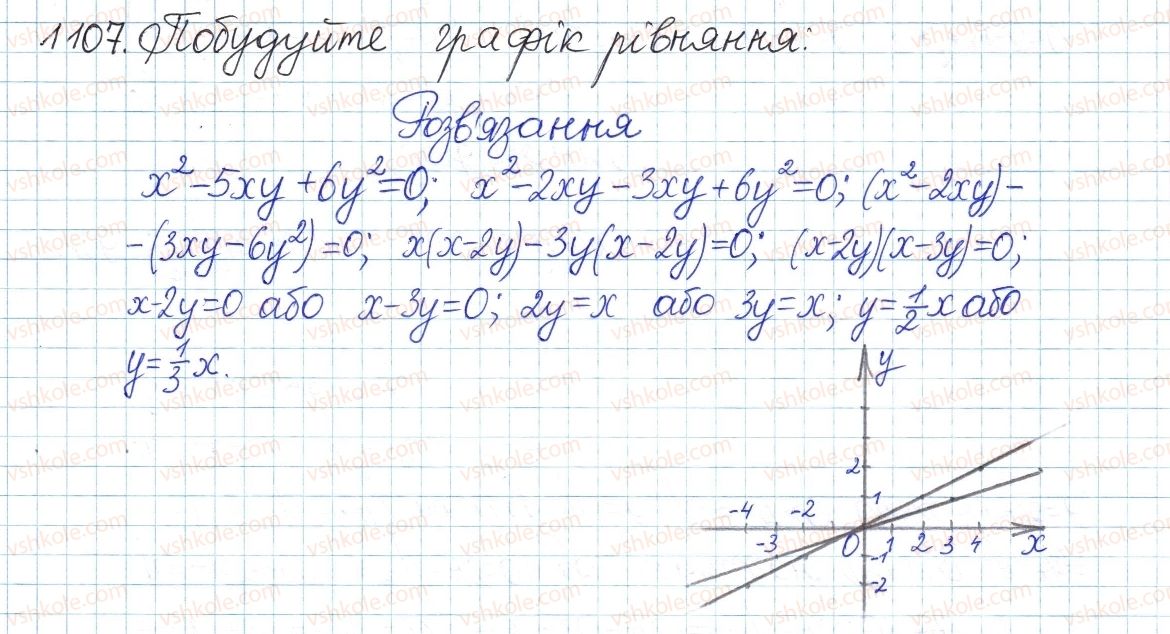 1107. Побудуйте графік рівняння:
Розв'язання
x²-5xy+6y²=0; x²-2xy-3xy+6y²=0; (x²-2xy)-
-(3xy-6y²)=0; x(x-2y)-3y(x-2y)=0; (x-2y)(x-3y)=0;
x-2y=0 або x-3y=0; 2y=x або 3y=x; y=1/2x або
y=1/3x.
y
2
1
-4 -2
-3 0 1 2 3 4 x
-1
-2
vshkole.com